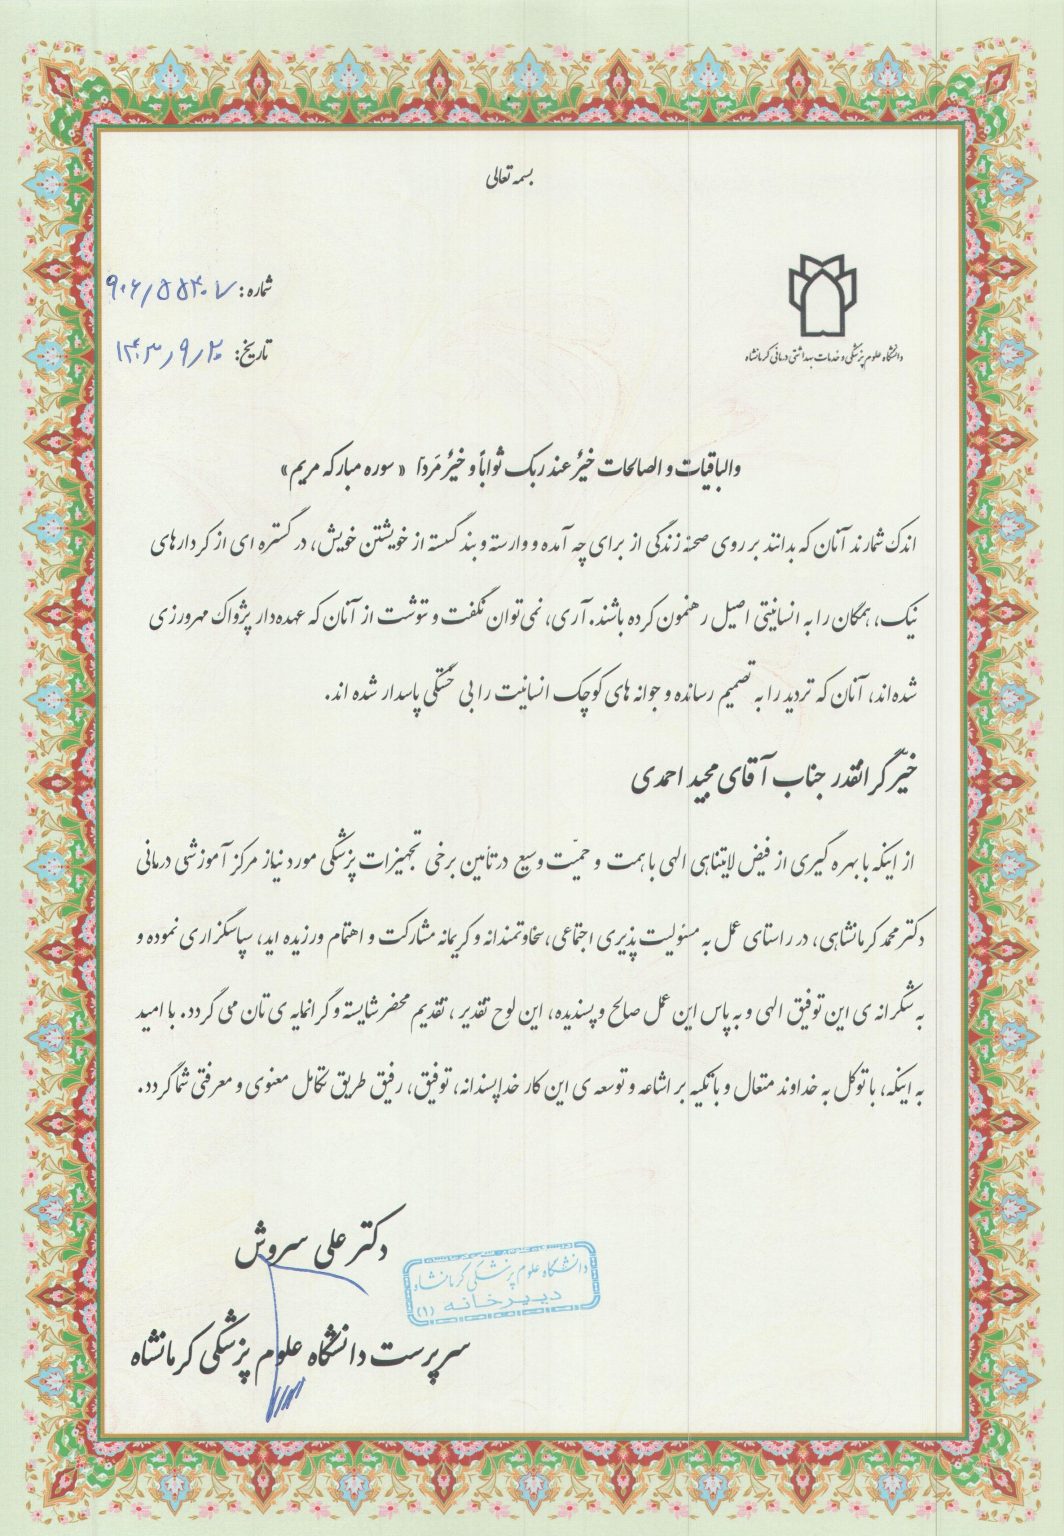 بسمه تعالی
شماره: ۹۰۶/۵۵۴۰۷
تاریخ: ۱۴۰۳/۹/۲۰
دانشگاه علوم پزشکی و خدمات بهداشتی درمانی کرمانشاه
والباقیات و الصالحات خیرٌ عند ربک ثواباً و خیرٌ مَردا «سوره مبارکه مریم»
اندک شمارند آنان که بدانند بر روی صحنهٔ زندگی از برای چه آمده و وارسته و بند گسسته از خویشتن خویش، در گستره ای از کردارهای
نیک، همگان را به انسانیتی اصیل رهنمون کرده باشند. آری، نمی‌توان نگفت و ننوشت از آنان که عهده‌دار پژواک مهرورزی
شده‌اند، آنان که تردید را به تصمیم رسانده و جوانه های کوچک انسانیت را بی خستگی پاسدار شده اند.
خیّر گرانقدر جناب آقای مجید احمدی
از اینکه با بهره گیری از فیض لایتناهی الهی با همت و حمیّت وسیع در تأمین برخی تجهیزات پزشکی مورد نیاز مرکز آموزشی درمانی
دکتر محمد کرمانشاهی، در راستای عمل به مسئولیت پذیری اجتماعی، سخاوتمندانه و کریمانه مشارکت و اهتمام ورزیده اید، سپاسگزاری نموده و
به شکرانه ی این توفیق الهی و به پاس این عمل صالح و پسندیده، این لوح تقدیر، تقدیم محضر شایسته و گرانمایه ی تان می گردد. با امید
به اینکه، با توکل به خداوند متعال و با تکیه بر اشاعه و توسعه ی این کار خداپسندانه، توفیق، رفیق طریق تکامل معنوی و معرفتی شما گردد.
دکتر علی سروش
دانشگاه علوم پزشکی کرمانشاه
دبیرخانه (۱)
سرپرست دانشگاه علوم پزشکی کرمانشاه